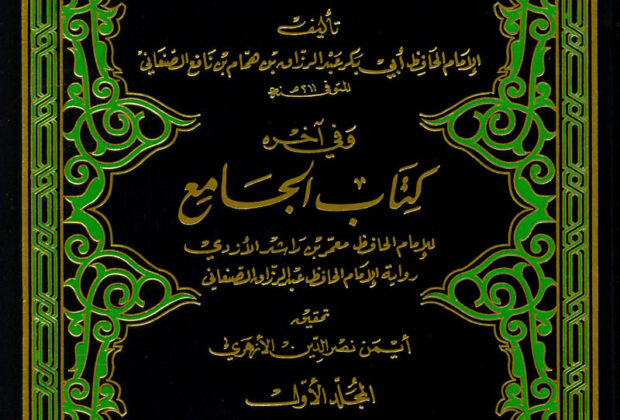 تأليف
الإمام الحافظ أبي بكر عبد الرزاق بن همام بن نافع الصنعاني
المتوفى ٢١١ هـ
وفي آخره
كتاب الجامع
للإمام الحافظ معمر بن راشد الأزدي
رواية الإمام الحافظ عبد الرزاق الصنعاني
تحقيق
أيمن نصر الدين الأزهري
المجلد الأول